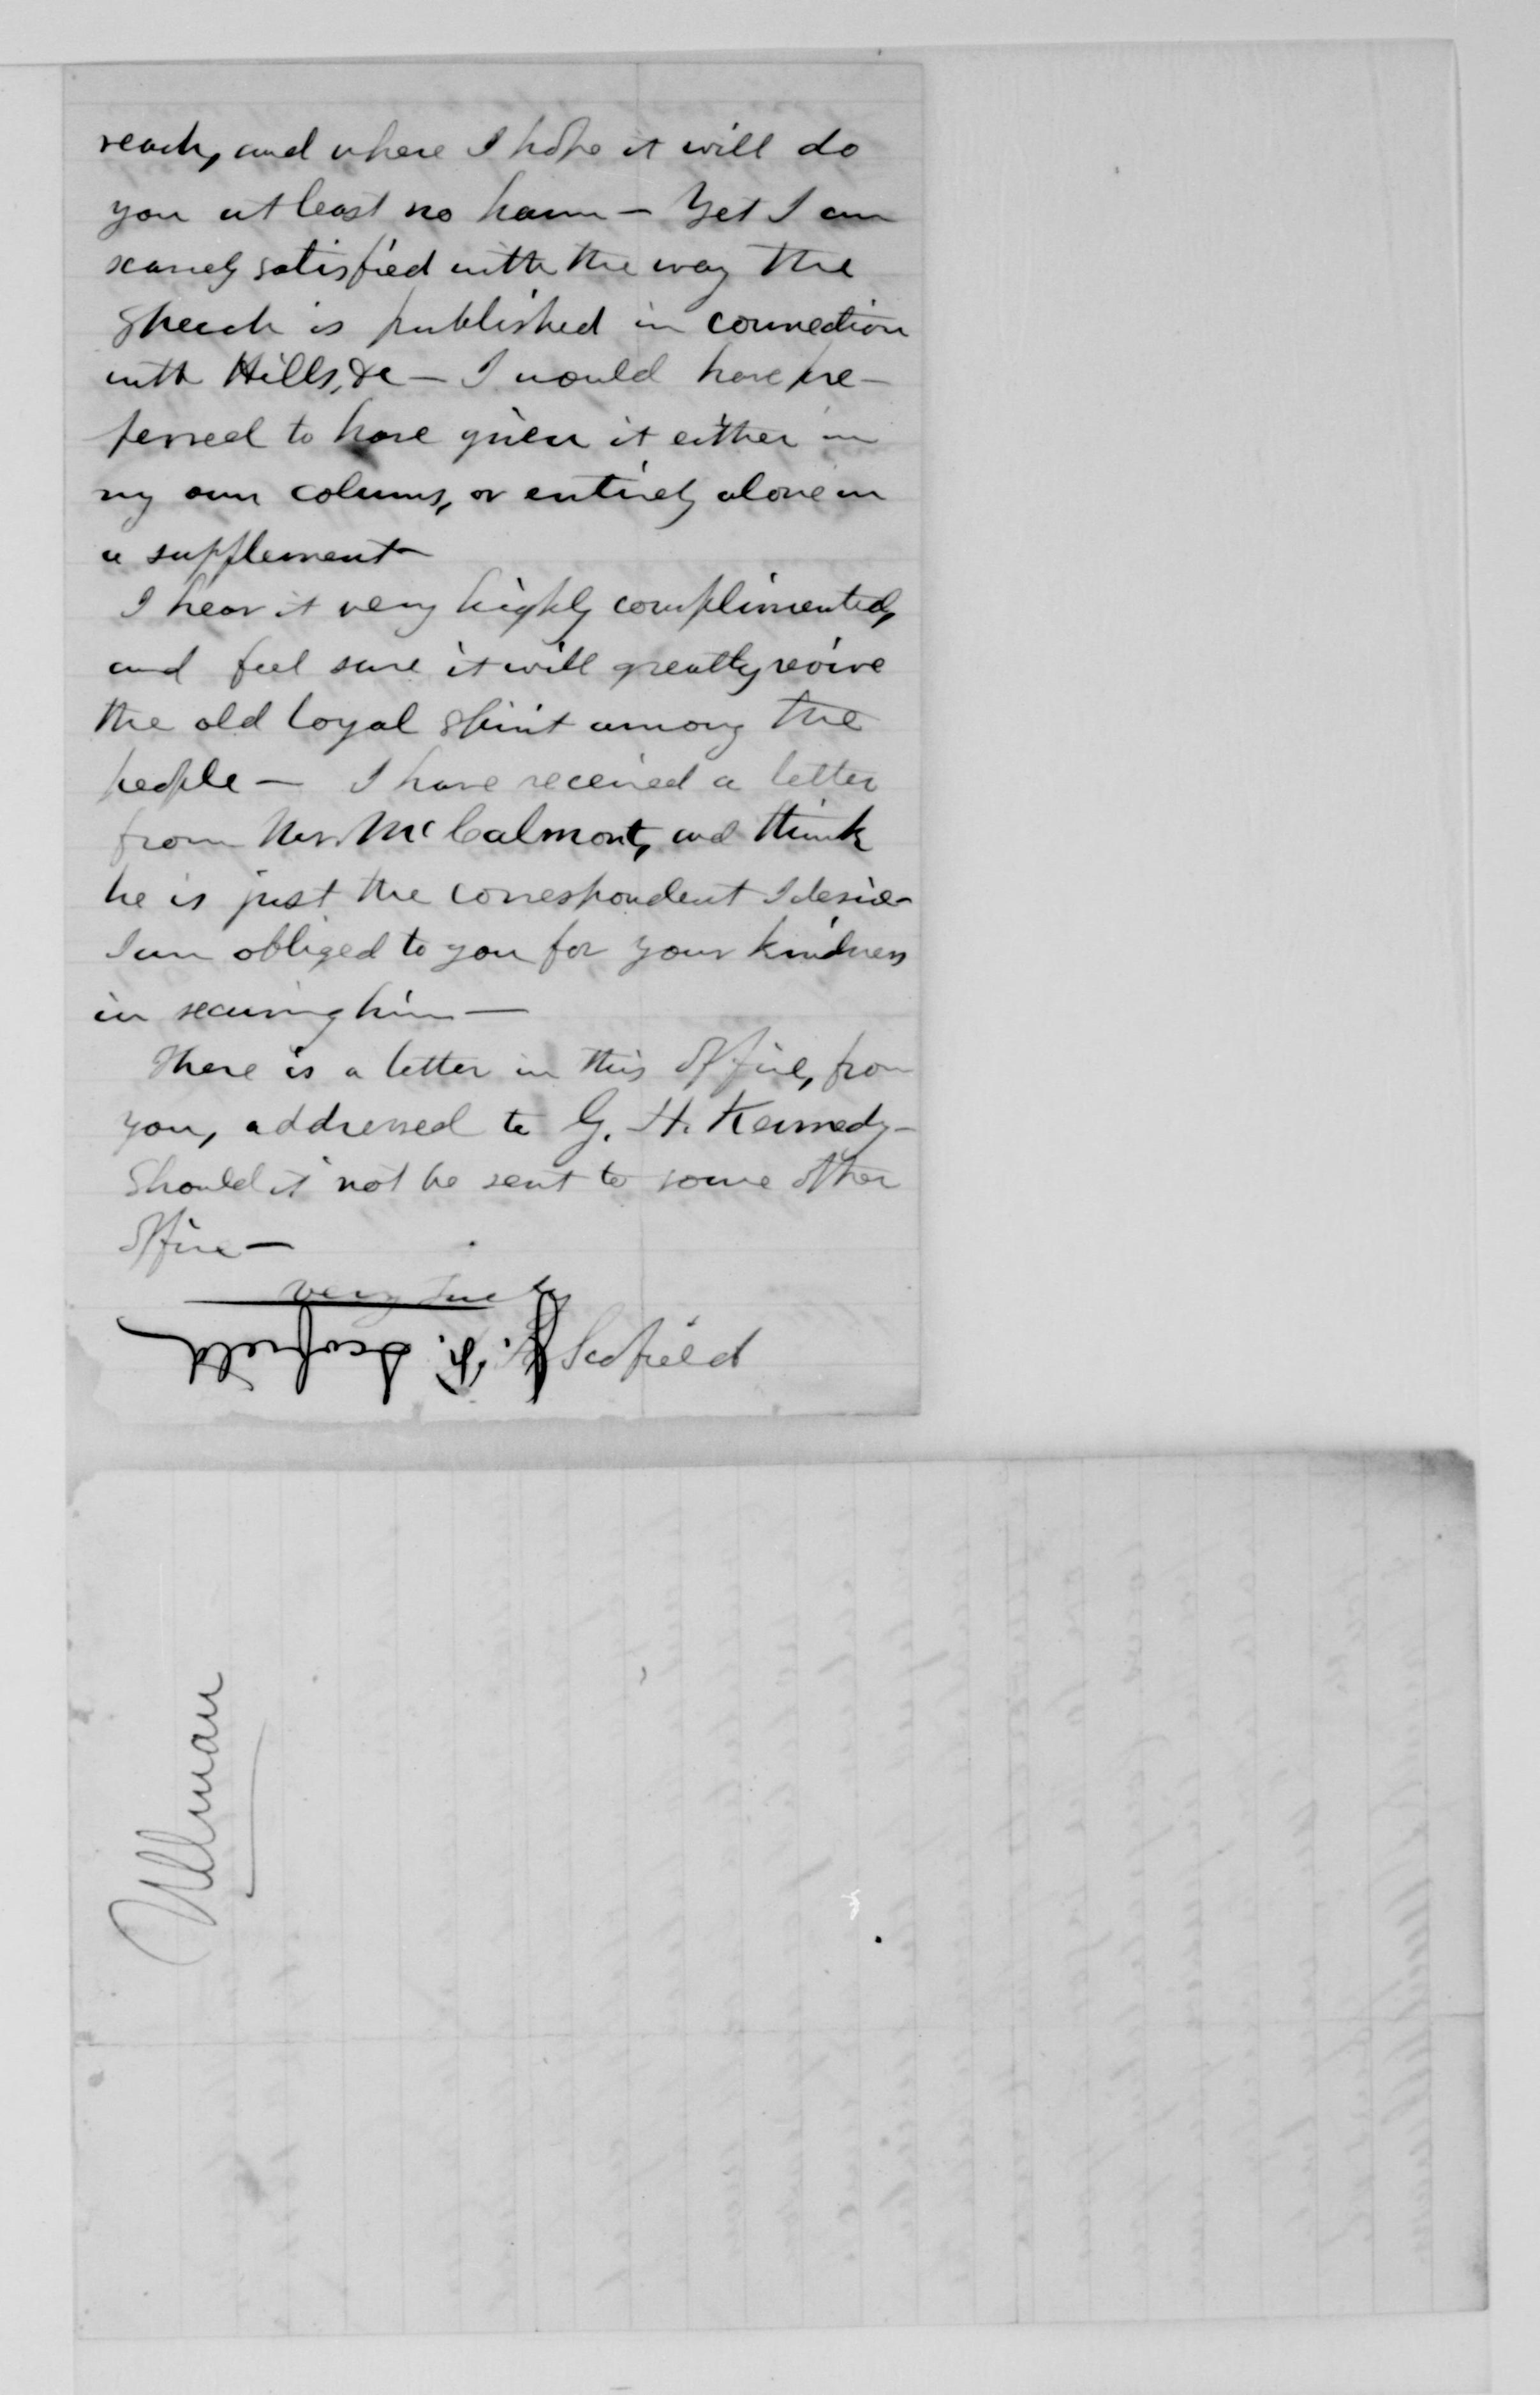 reach, and where I hope it will do
you at least no harm — Yet I am
scarcely satisfied with the way the
Speech is published in connection
with Hills, &c — I would have pre-
ferred to have given it either in
my own columns, or entirely alone in
a supplement —
I hear it very highly complimented,
and feel sure it will greatly revive
the old loyal spirit among the
people — I have received a letter
from McCalmont, and think
he is just the correspondent I desire —
I am obliged to you for your kindness
in securing him —
There is a letter in this Office, from
you, addressed to G. H. Kennedy —
Should it not be sent to some other
Office —
very truly
J. Scofield
Scofield
Ullman